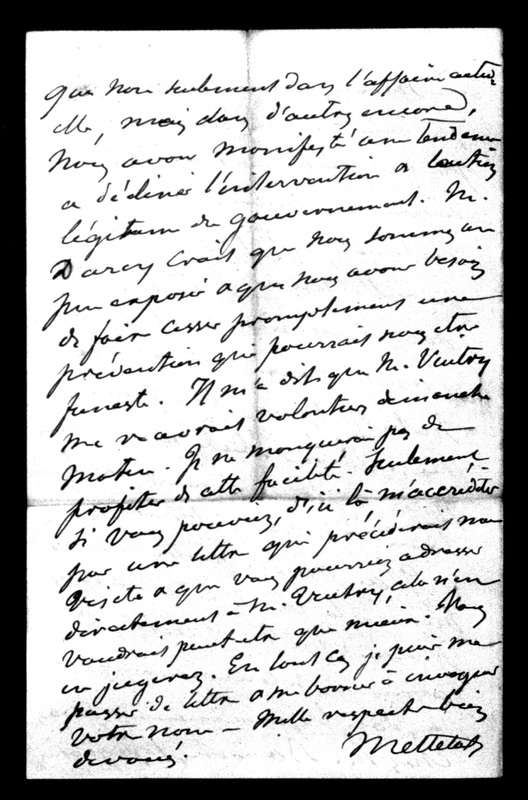 que non seulement dans l'affaire actu-
elle, mais dans d'autres encore,
nous avons manifesté une tendance
à décliner l'intervention et l'action
légitime du gouvernement. M.
Darcy croit que nous sommes un
peu exposés et que nous avons besoin
de faire cesser promptement une
prévention qui pourrait nous être
funeste. Il m'a dit que M. Vuitry
me recevrait volontiers dimanche
matin. Je ne manquerai pas de
profiter de cette facilité. Seulement
si vous pouviez, d'ici là, m'accréditer
par une lettre qui précéderait ma
visite et que vous pourriez adresser
directement à M. Vuitry, cela n'en
vaudrait peut être que mieux. Vous
en jugerez. En tout cas je puis me
passer de lettre et me borner à invoquer
votre nom – Mille respects bien
dévoués.
Mettetal